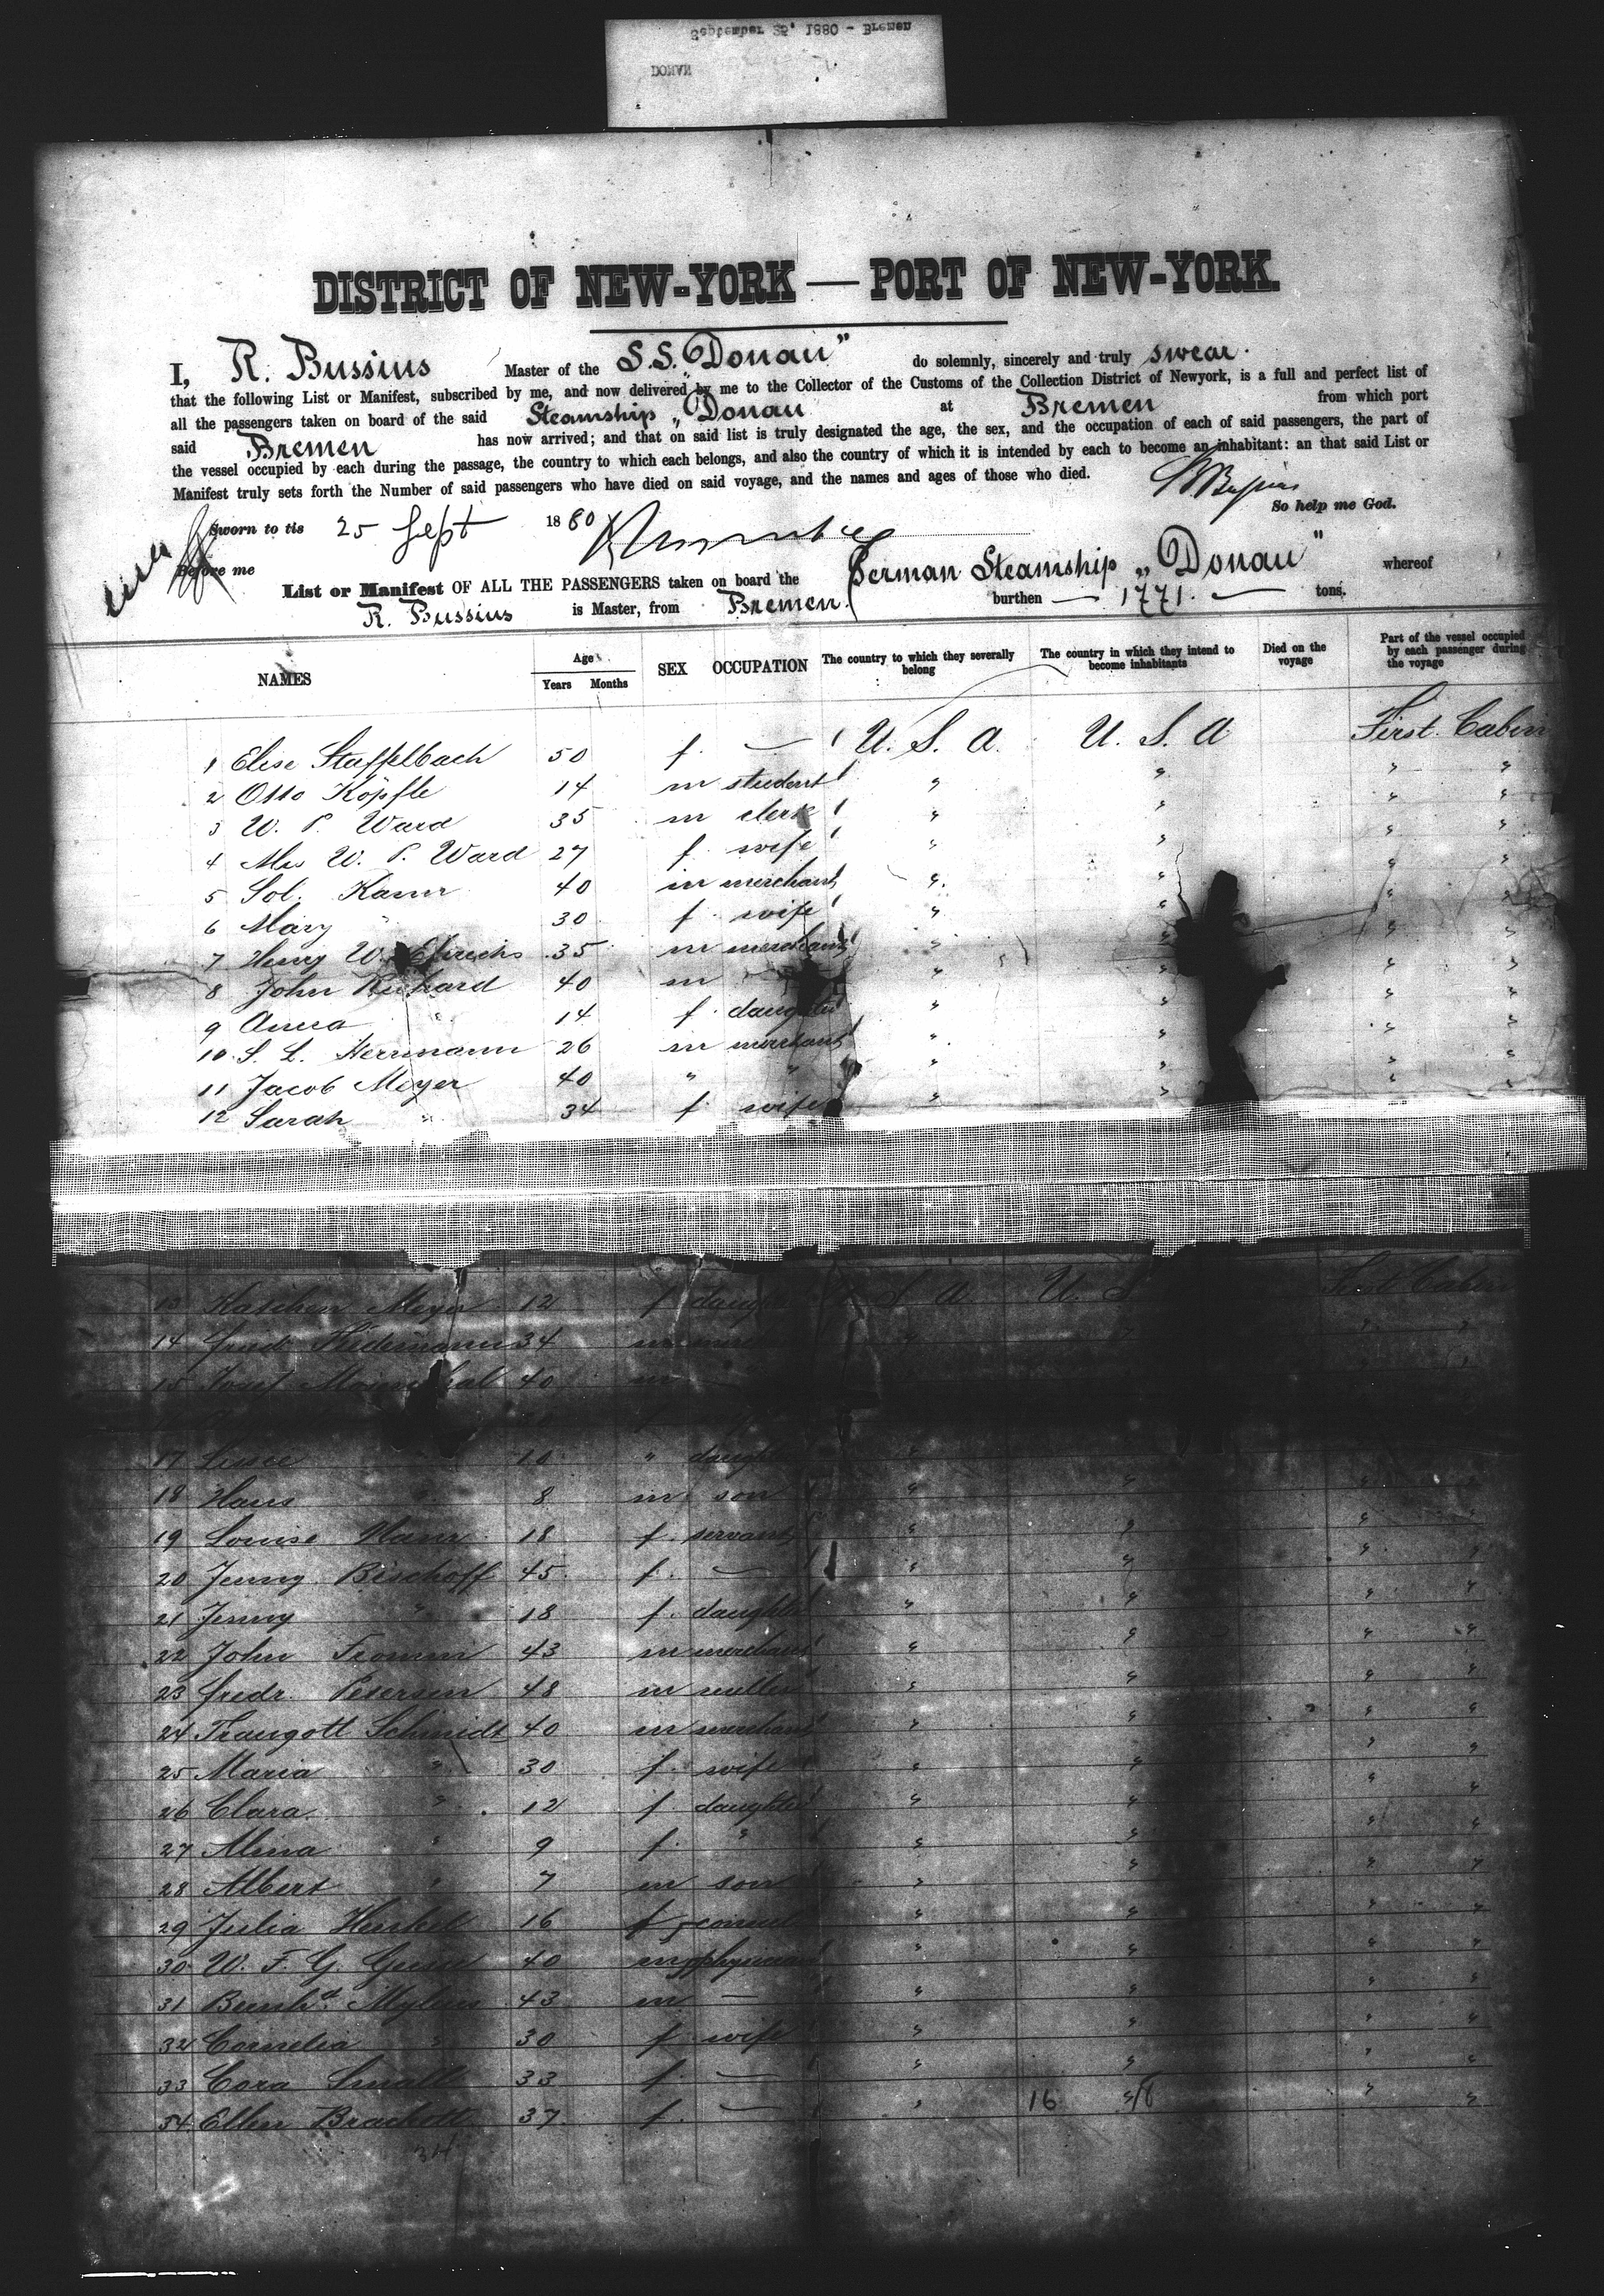 September 25, 1880 - Bremen
DONAU
DISTRICT OF NEW-YORK — PORT OF NEW-YORK.
I, R. Bussius Master of the S.S. „Donau" do solemnly, sincerely and truly swear.
that the following List or Manifest, subscribed by me, and now delivered by me to the Collector of the Customs of the Collection District of Newyork, is a full and perfect list of
all the passengers taken on board of the said Steamship „Donau at Bremen from which port
said Bremen has now arrived; and that on said list is truly designated the age, the sex, and the occupation of each of said passengers, the part of
the vessel occupied by each during the passage, the country to which each belongs, and also the country of which it is intended by each to become an inhabitant: an that said List or
Manifest truly sets forth the Number of said passengers who have died on said voyage, and the names and ages of those who died.
So help me God.
Sworn to tis 25 Sept 1880
Before me
List or Manifest OF ALL THE PASSENGERS taken on board the German Steamship „Donau" whereof
R. Bussius is Master, from Bremen. burthen — 1771. — tons.
NAMES Age Years Months SEX OCCUPATION The country to which they severally belong The country in which they intend to become inhabitants Died on the voyage Part of the vessel occupied by each passenger during the voyage
1 Elise Staffelbach 50 f. — U. S. A. U. S. A First Cabin
2 Otto Köpfle 14 m student " " " "
3 W. P. Ward 35 m clerk " " " "
4 Mrs W. P. Ward 27 f. wife " " " "
5 Sol. 40 m merchant " " " "
6 Mary " 30 f. wife " " " "
7 Henry W. 35 m merchant " " " "
8 John 40 m " " " "
9 Anna " 14 f. daughter " " " "
10 S. L. Herrmann 26 m merchant " " " "
11 Jacob Meyer 40 " " " " " "
12 Sarah " 34 f. wife " " " "
13 Meyer 12 f S. A U. S Cabin
14 34 m
15 40 m
17 10 " daughter "
18 Hans " 8 m son " " " "
19 Louise 18 f. servant " " " "
20 Jenny Bischoff 45 f. — " " " "
21 Jenny " 18 f. daughter " " " "
22 John Fromm 43 m merchant " " " "
23 Fredr. Petersen 48 m " " " "
24 Traugott Schmidt 40 m merchant " " " "
25 Maria " 30 f. wife " " " "
26 Clara " 12 f. daughter " " " "
27 Mina " 9 f. " " " " "
28 Albert " 7 m son " " " "
29 Julia Henkel 16 f " " " "
30 W. F. G. 40 m physician " " " "
31 Mylius 43 m — " " " "
32 Cornelia " 30 f wife " " " "
33 Cora Small 33 f. — " " " "
34 Ellen Brackett 37 f. — " 16 " 18 " "
34